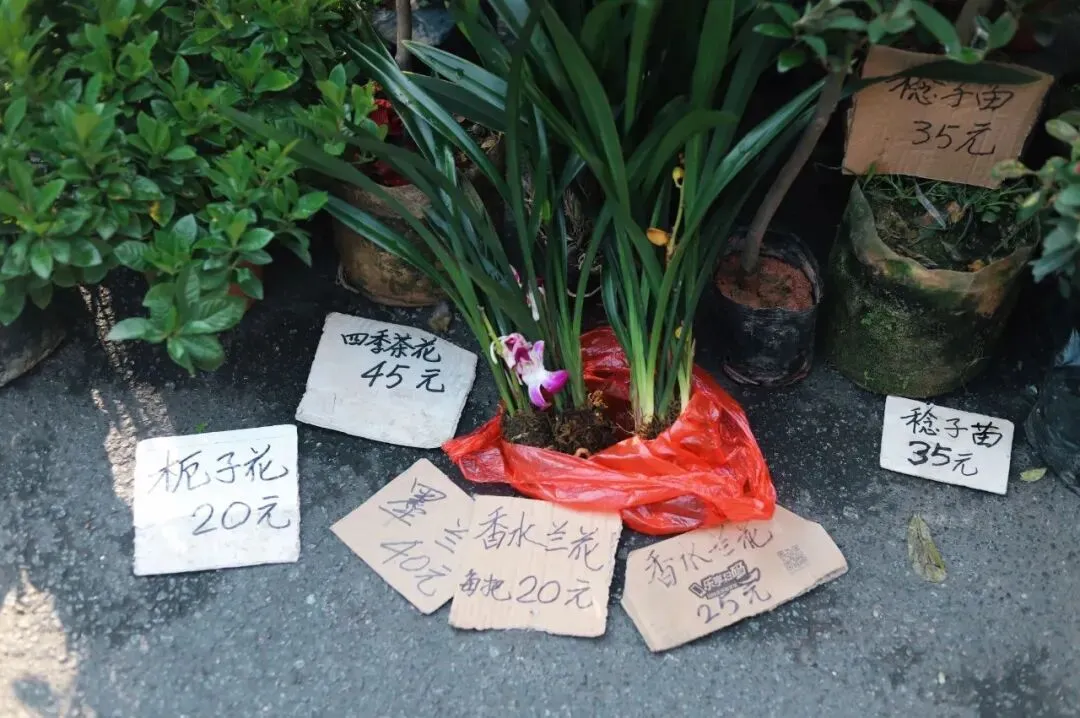 稔子苗
35元
四季茶花
45元
枙子花
20元
墨兰
40元
香水兰花
每把20元
香水兰花
25元
稔子苗
35元